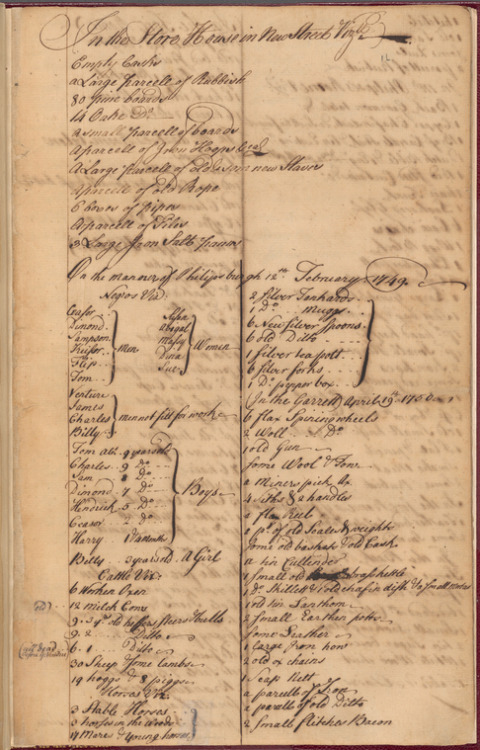 In the Store House in New Street Vizt
Empty Casks
a Large parcell of Rubbish
80 pine boards
14 Oake Do
a small parcell of boards
A parcell of Iron Hoops &ca
a Large parcell of old & som new Staves
A parcell of old Rope
6 boxes of pipes
A parcell of Tiles
3 Large Iron Salt panns
On the mannor of Philipsburgh 12th February 1749
Negros Vizt
Ceasor
Dimond
Sampson
Keisor
Flip
Tom
men
Abigal
Massy
Dina
Sue
Women
Venture
James
Charles
Billy
men not fitt for work
Tom abt 9 years old
Charles 9 Do
Sam 8 Do
Dimond 7 Do
Hendrick 5 Do
Ceasor 2 Do
Harry months
Boys
Betty 3 years old A Girl
Cattle Vizt
6 Working Oxen
12 milch Cows
9. 3 yr old heffers steers & bulls
9. 2 Ditto
6. 1 Ditto
30 Sheep some lambs
19 hoggs & 8 piggs
Horses Vizt
3 Stable Horses
3 horses in the woods
4 Mares & young horses
2 Silver Tankards
1 Do muggs
6 New Silver Spoons
6 old Ditto
1 Silver tea pott
6 Silver forks
1 Do pepper box
In the Garrett April 19th 1750
6 flax Spining wheels
2 Wooll Do
1 old Gun
Some Wool & Tow
a Miners pick Ax
4 Siths & 2 handles
a flax
1 pr of old Scales & weights
Some old baskets & old Cask
a tin Cullender
1 small old brass kettle
1 Do Skillett & 1 old chafin dish &
1 old tin Lanthorn
2 small Earthen potts
Some Leather
1 Large Iron
2 old ox chains
1 Nett
a parcell of Iron
a parcell of old Ditto
2 small flitches Bacon